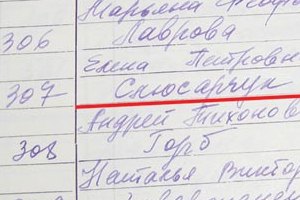 Марьяна Теофи
306 Лаврова
Елена Петровн
307 Слюсарчук
Андрей Тихонов
308 Горб
Наталья Виктор